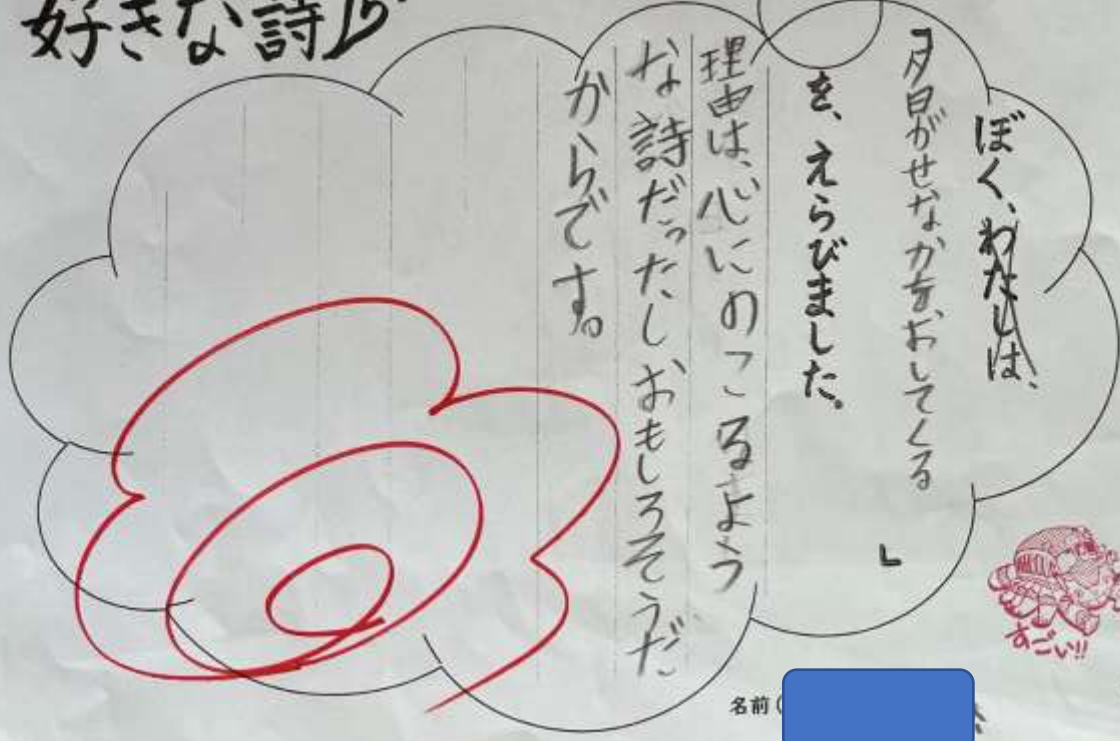 好きな詩
ぼく、わたしは、
「夕日がせなかをおしてくる
」
を、えらびました。
理由は、心にのこるよう
な詩だったしおもしろそうだ
からです。
すごい!!
名前(